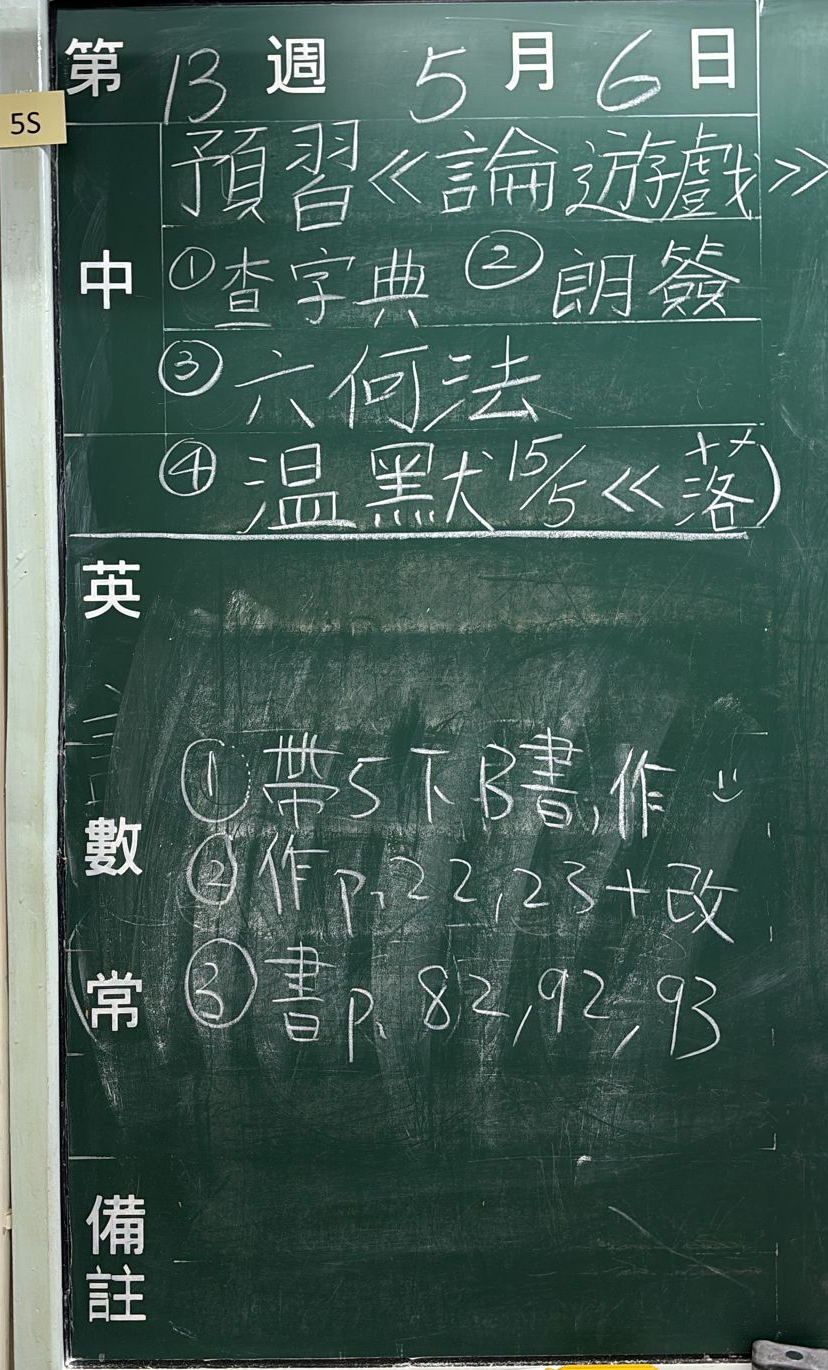 第 13 週 5 月 6 日
5S
預習《論遊戲》
中
①查字典 ②朗簽
③六何法
④溫默15/5《落)
英
①帶5下B書,作
數
②作p.22,23+改
常
③書p.82,92,93
備註